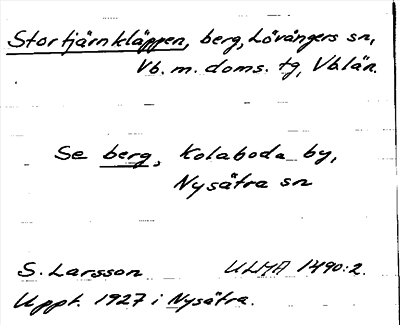 Stortjärnkläppen, berg, Lövångers sn,
Vb. m. doms. tg, Vb.län.
Se berg, Kolaboda by,
Nysätra sn
S. Larsson ULMA 1490:2.
Uppt. 1927 i Nysätra.